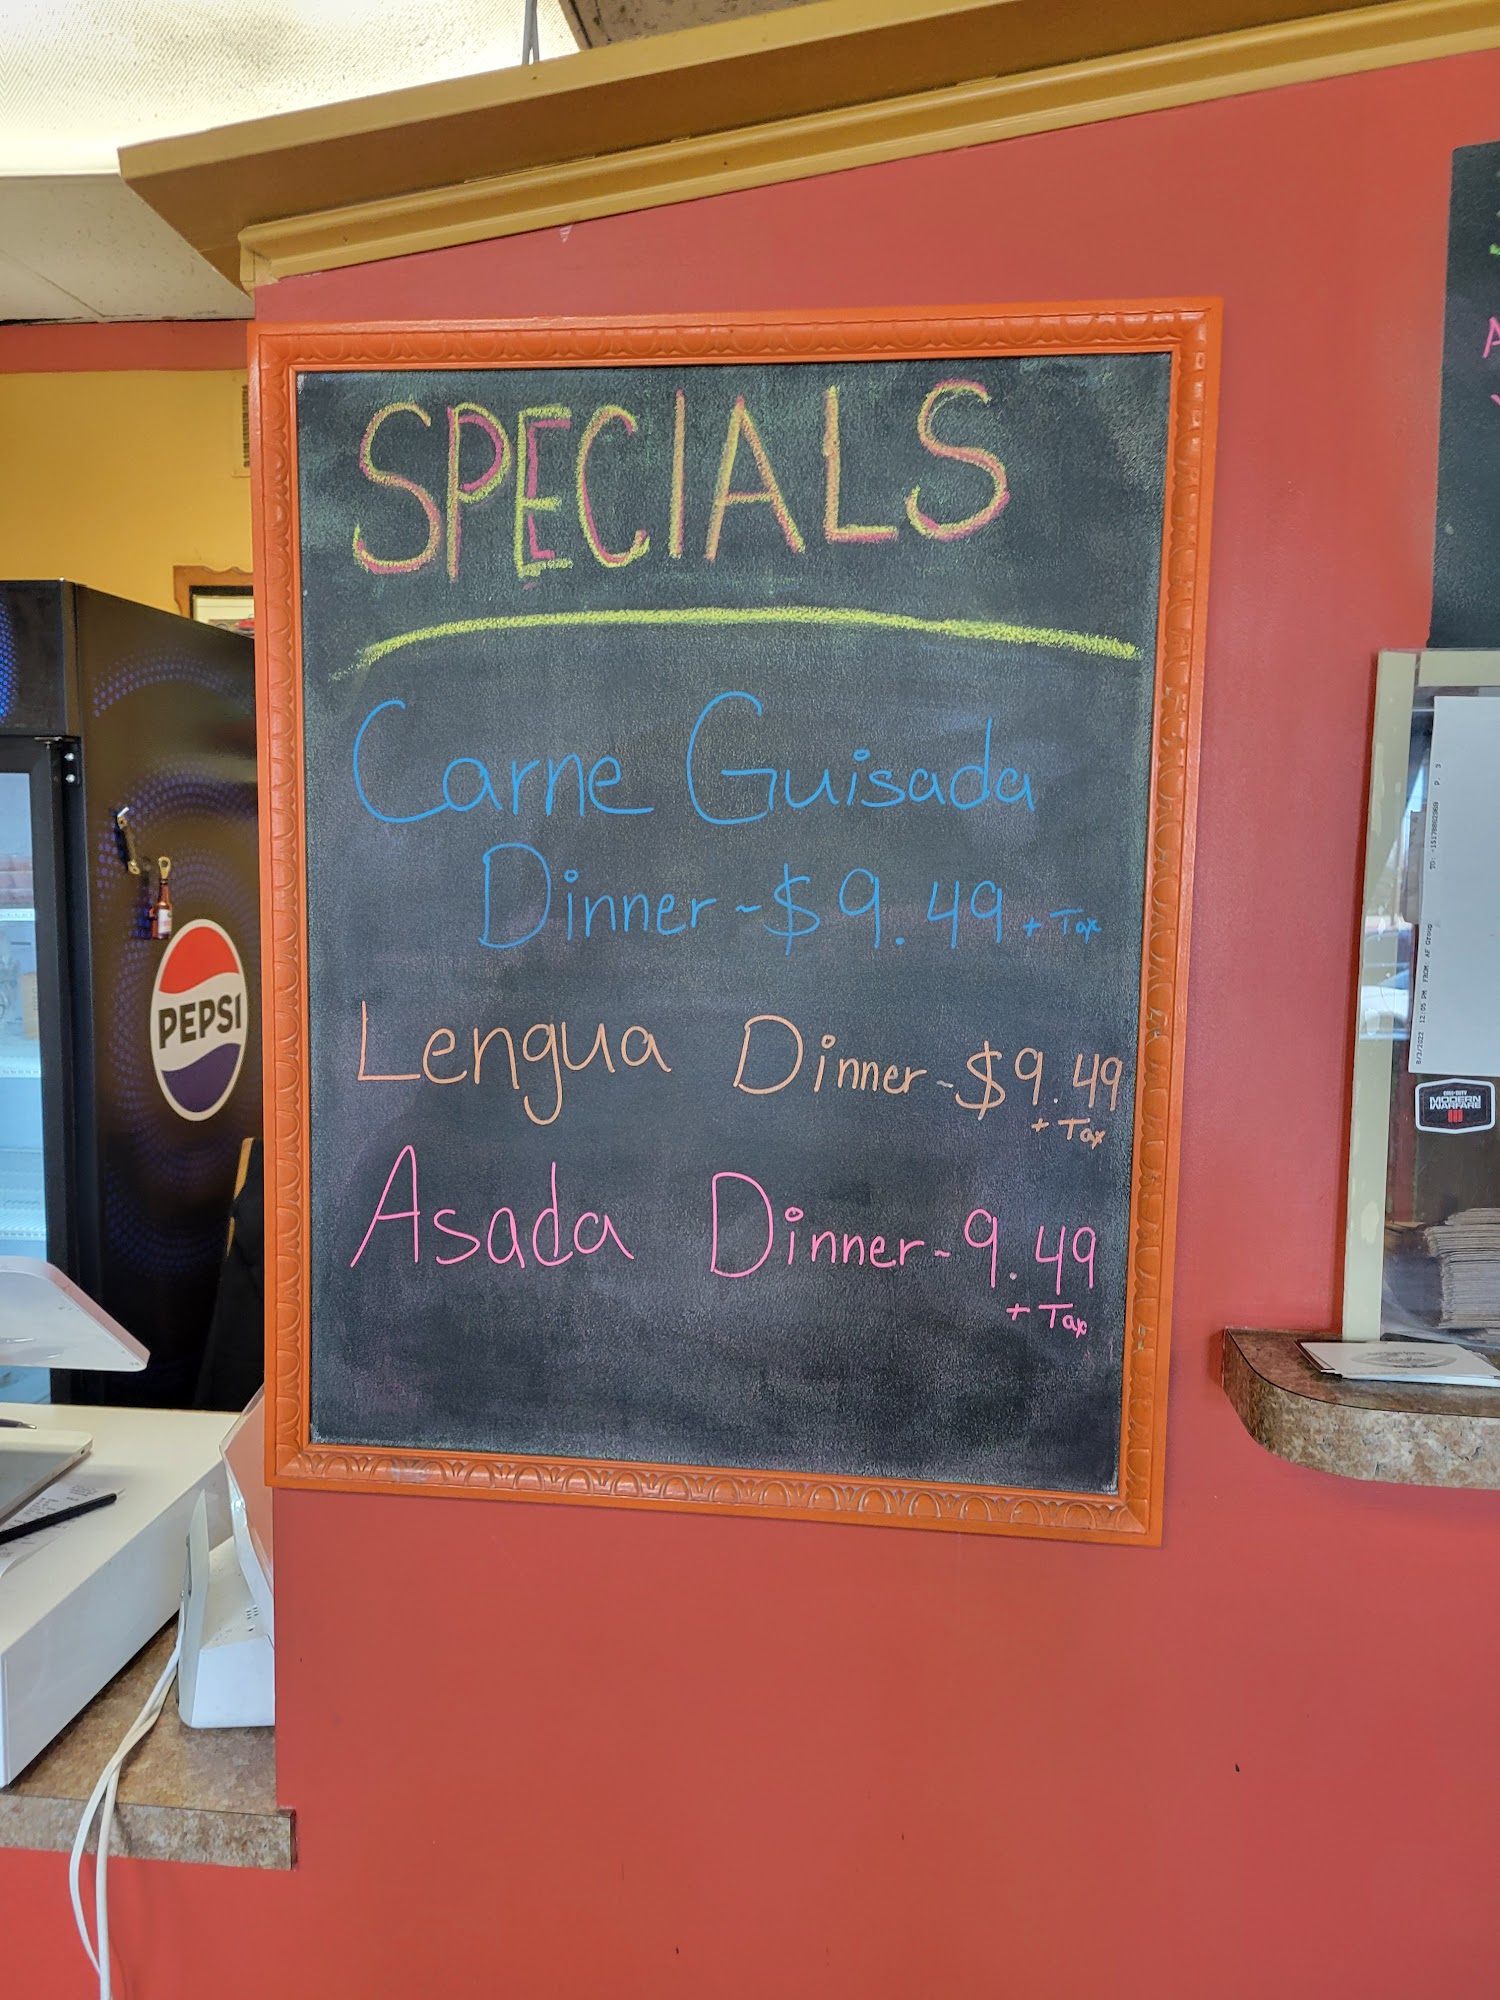 SPECIALS
Carne Guisada
Dinner ~ $9.49 + Tax
Lengua Dinner ~ $9.49
+ Tax
Asada Dinner ~ 9.49
+ Tax
PEPSI
MODERN
WARFARE
III